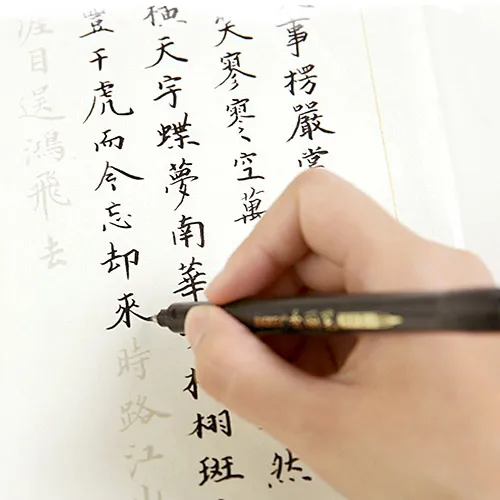 事楞嚴嘗
笑寥寥空萬
然
橫天宇蝶夢南華
栩斑
豐干虎而今忘却來時路江山
涯目送鴻飛去